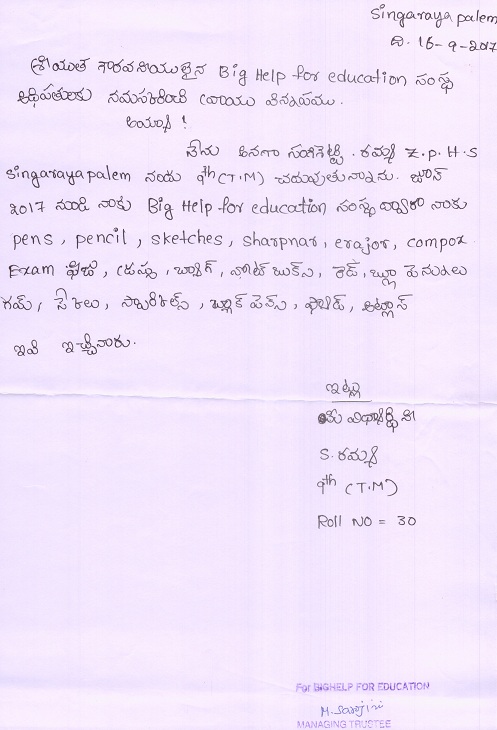 Singarayapalem
ది. 16-9-2017
శ్రీయుత గౌరవనీయులైన Big Help for education సంస్థ
అధిపతులకు నమస్కరించి వ్రాయు విన్నపము.
అయ్యా !
నేను అనగా సంగిశెట్టి. రమ్య Z.P.H.S
Singarayapalem నందు 9th (T.M) చదువుతున్నాను. జూన్
2017 నుండి నాకు Big Help for education సంస్థ ద్వారా నాకు
pens, pencil, sketches, sharpnar, erajor, compox
Exam ఫీజు, డ్రస్సు, బ్యాగ్, నోట్ బుక్స్, రెడ్, బ్లూ పెనులు
గమ్, స్కేలు, బ్లాక్ పెన్స్, అట్లాస్
ఇవి ఇచ్చినారు.
ఇట్లు
మీ విధ్యార్థిని
S. రమ్య
9th (T.M)
Roll NO = 30
For BIGHELP FOR EDUCATION
M. Sarojini
MANAGING TRUSTEE